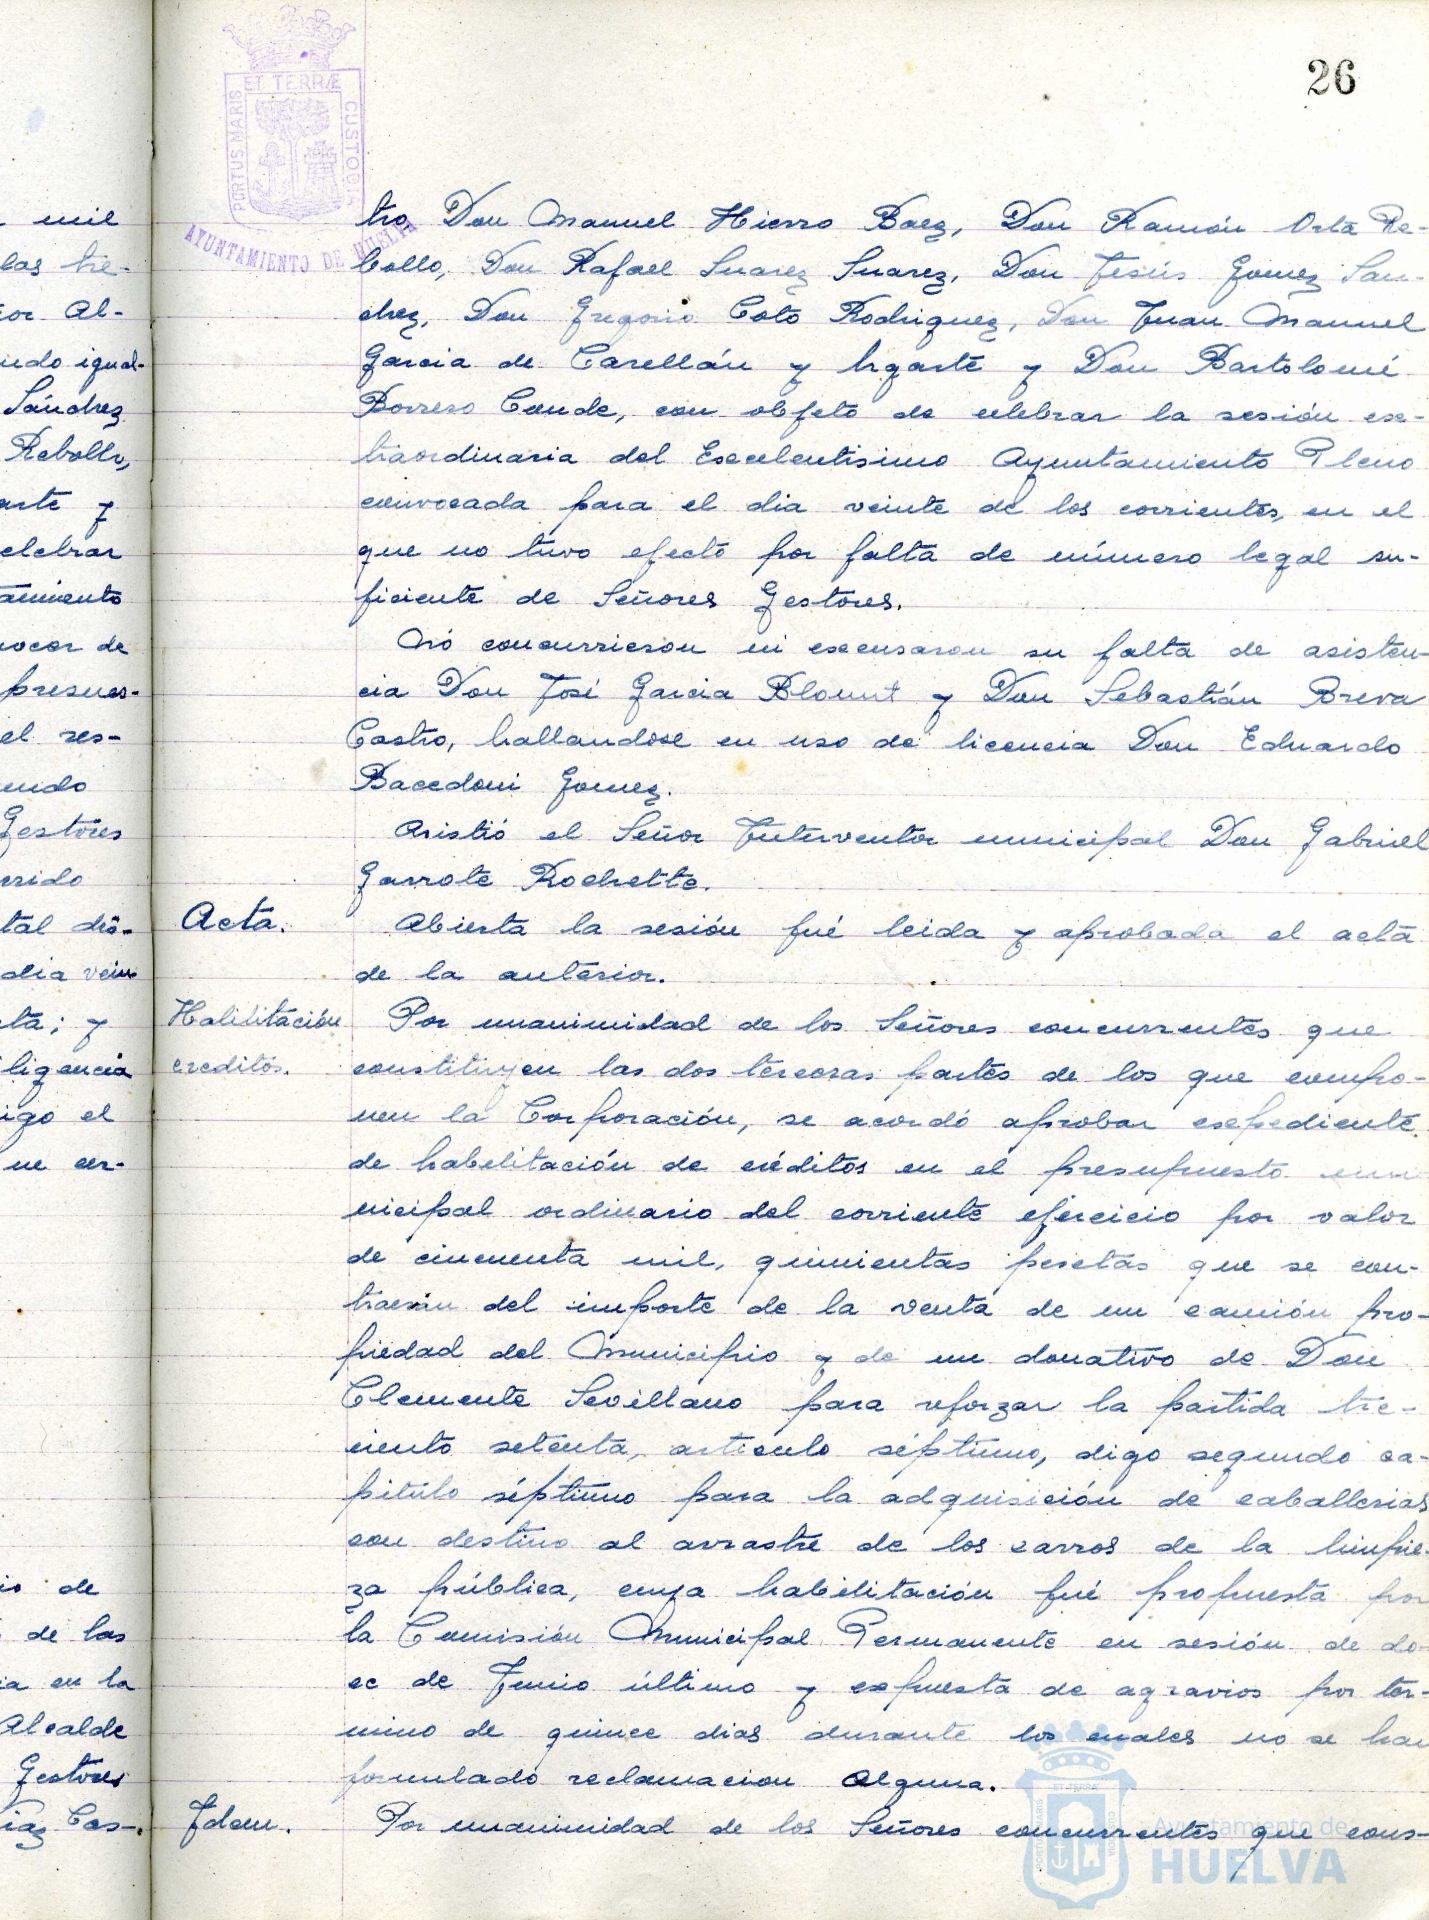 26
ET TERRÆ
PORTUS MARIS
CUSTODIA
AYUNTAMIENTO DE HUELVA
mil
las tie-
or Al-
ndo igual-
Sánchez
Rebollo,
arte y
elebrar
amiento
nocer de
presues-
el res-
endo
Gestores
rrido
tal dis-
dia vein
ta; y
ligencia
igo el
ue cer-
io de
de las
ia en la
Alcalde
Gestores
iaz Cas-
tro, Don Manuel Hierro Baez, Don Ramón Orta Re-
bollo, Don Rafael Suarez Suarez, Don Jesús Gomez San-
chez, Don Gregorio Coto Rodriguez, Don Juan Manuel
Garcia de Carellán y Ugarte y Don Bartolomé
Borrero Conde, con objeto de celebrar la sesión ex-
traordinaria del Excelentisimo Ayuntamiento Pleno
convocada para el dia veinte de los corrientes, en el
que no tuvo efecto por falta de número legal su-
ficiente de Señores Gestores.
Nó concurrieron ni excusaron su falta de asisten-
cia Don José Garcia Blount y Don Sebastián Breva
Castro, hallandose en uso de licencia Don Eduardo
Bacedoni Gomez.
Asistió el Señor Interventor municipal Don Gabriel
Garrote Rochette.
Acta.
Abierta la sesión fué leida y aprobada el acta
de la anterior.
Habilitación
creditos.
Por unanimidad de los Señores concurrentes que
constituyen las dos terceras partes de los que compo-
nen la Corporación, se acordó aprobar expediente
de habilitación de créditos en el presupuesto mu
nicipal ordinario del corriente ejercicio por valor
de cincuenta mil, quinientas pesetas que se con-
traerán del importe de la venta de un camión pro-
piedad del Municipio y de un donativo de Don
Clemente Sevillano para reforzar la partida tre-
ciento setenta, articulo séptimo, digo segundo ca-
pitulo séptimo para la adquisición de caballerias
con destino al arrastre de los carros de la limpie-
za pública, cuya habilitación fué propuesta por
la Comisión Municipal Permanente en sesión de do-
ce de Junio último y expuesta de agravios por tér-
mino de quince dias durante los cuales no se han
formulado reclamacion alguna.
Idem.
Por unanimidad de los Señores concurrentes que cons-
Ayuntamiento de
HUELVA